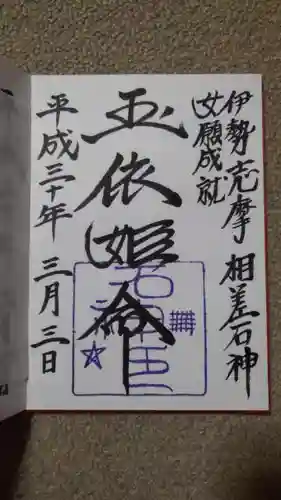 伊勢志摩 相差石神
女願成就
玉依姫命
平成三十年 三月三日